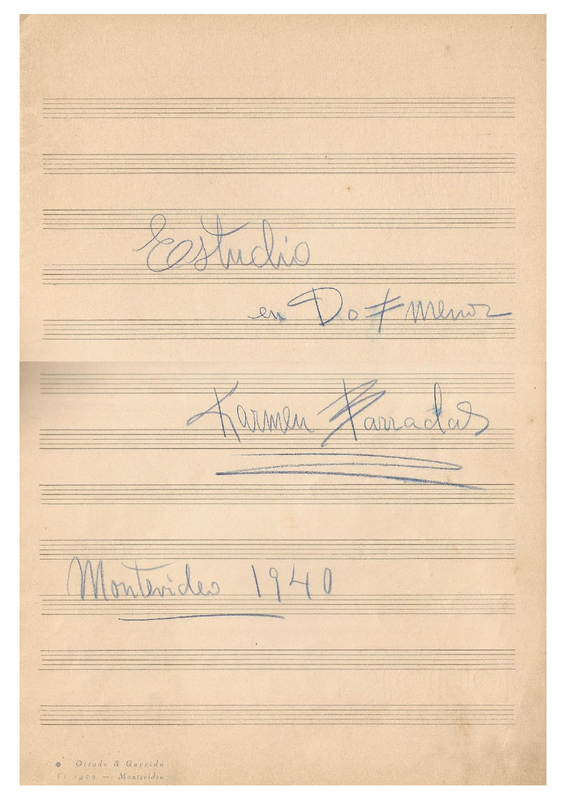 Estudio
en Do # menor
Karmen Barradas
Montevideo 1940
& Garrido
— Montevideo